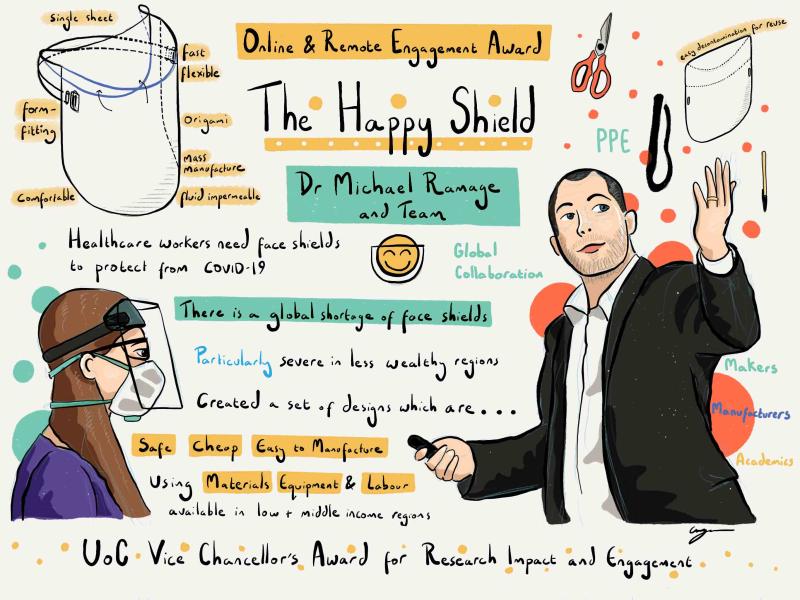 Single sheet
fast
flexible
form-
fitting
Origami
Mass
manufacture
Comfortable
fluid impermeable
Online & Remote Engagement Award
The Happy Shield
Dr Michael Ramage
and Team
easy decontamination for reuse
PPE
Healthcare workers need face shields
to protect from COVID-19
Global
Collaboration
There is a global shortage of face shields
Particularly severe in less wealthy regions
Created a set of designs which are...
Safe Cheap Easy to Manufacture
Using Materials Equipment & Labour
available in low + middle income regions
Makers
Manufacturers
Academics
UoC Vice Chancellor's Award for Research Impact and Engagement